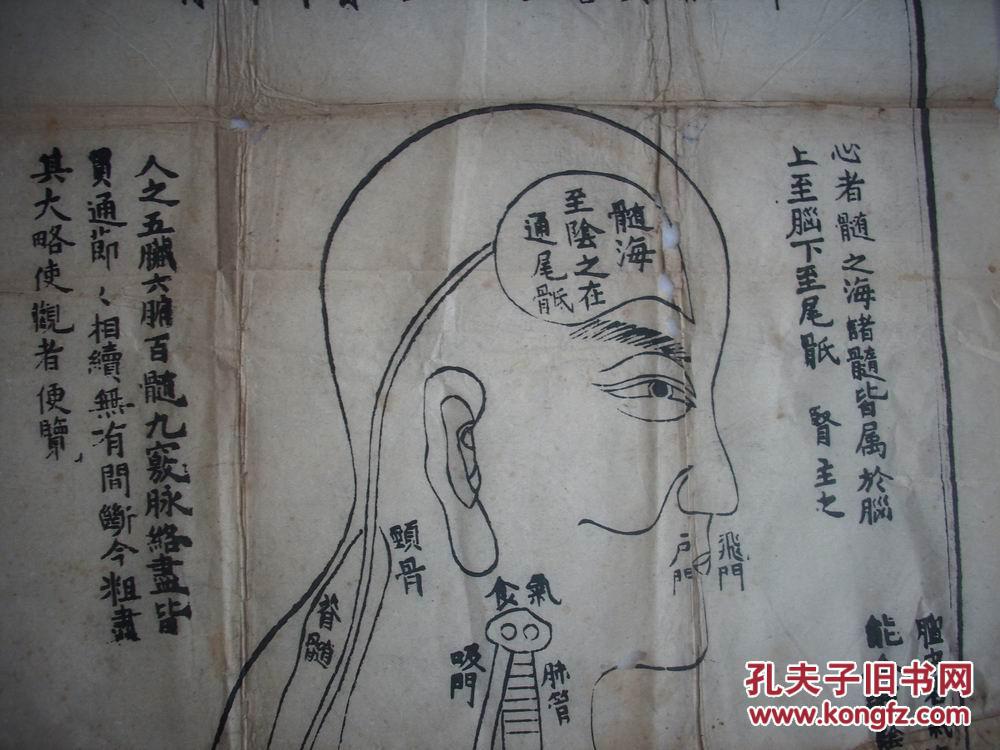 心者髓之海諸髓皆属於腦
上至腦下至尾骶 腎主之
髓海
至陰之在
通尾骶骨
人之五臟六腑百髓九竅脉絡盡皆
貫通節〻相續無有間斷今粗畫
其大略使觀者便覽
頸骨
脊髓
食 氣
吸門
肺管
戸門
飛門
能
孔夫子旧书网
www.kongfz.com